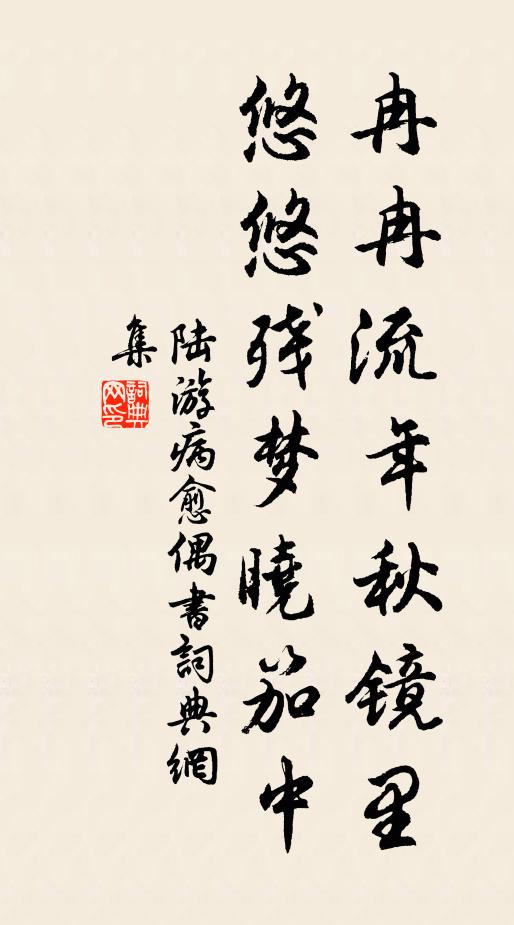 冉冉流年秋镜里
悠悠残梦晓笳中
陆游病愈偶书詞典網
集
詞典
网印